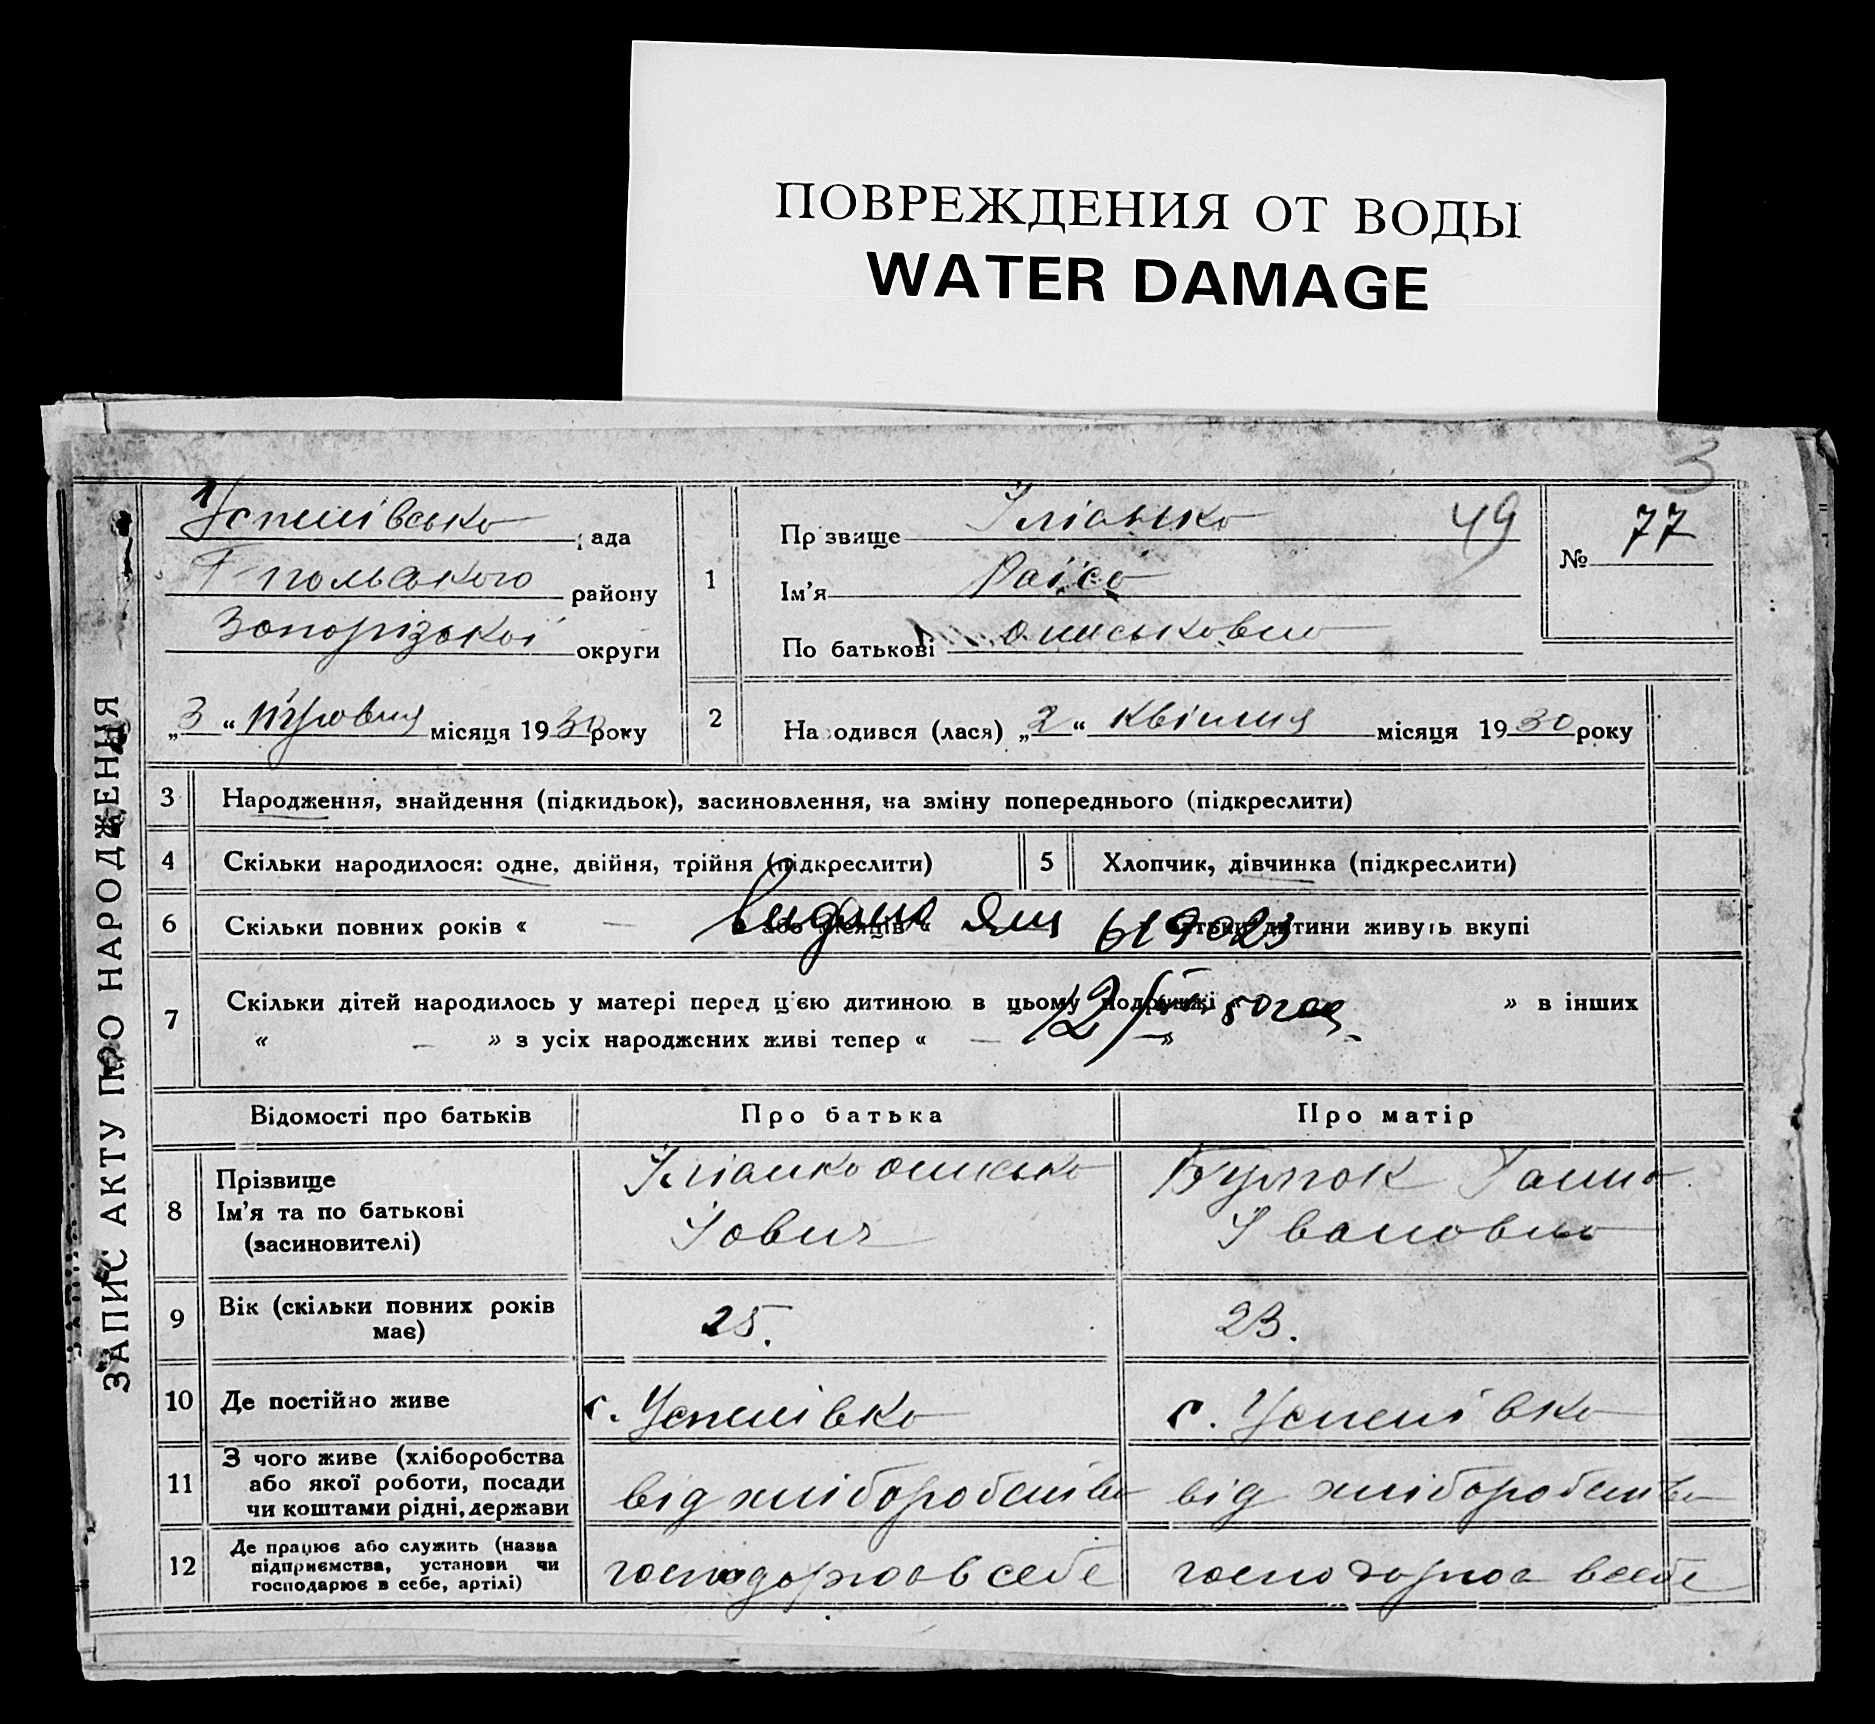 ПОВРЕЖДЕНИЯ ОТ ВОДЫ
WATER DAMAGE
3
ЗАПИС АКТУ ПРО НАРОДЖЕННЯ
Успенівська рада
району
Запорізької округи
„3“ травня місяця 1930 року
1
Прізвище 49
Ім'я Раїса
По батькові Ониськовна
№ 77
2
Народився (лася) „2“ квітня місяця 1930 року
3 Народження, знайдення (підкидьок), засиновлення, на зміну попереднього (підкреслити)
4 Скільки народилося: одне, двійня, трійня (підкреслити)
5 Хлопчик, дівчинка (підкреслити)
6 Скільки повних років « — або місяців « батьки дитини живуть вкупі
7 Скільки дітей народилось у матері перед цією дитиною в цьому подружжі » в інших
« — » з усіх народжених живі тепер « — »
Відомості про батьків
Про батька
Про матір
8 Прізвище
Ім'я та по батькові
(засиновителі)
Онисько
Йович
Ганна
Івановна
9 Вік (скільки повних років
має)
25.
23.
10 Де постійно живе
с. Успенівка
с. Успенівка
11 З чого живе (хліборобства
або якої роботи, посади
чи коштами рідні, держави
від хліборобства
від хліборобства
12 Де працює або служить (назва
підприємства, установи чи
господарює в себе, артілі)
господарює в себе
господарює в себе